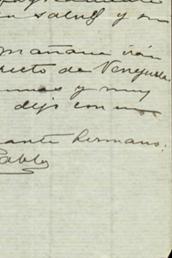 en salud y su
mañana irán
recto de Venezuela
y muy
dejo con
ante hermano.
Pablo